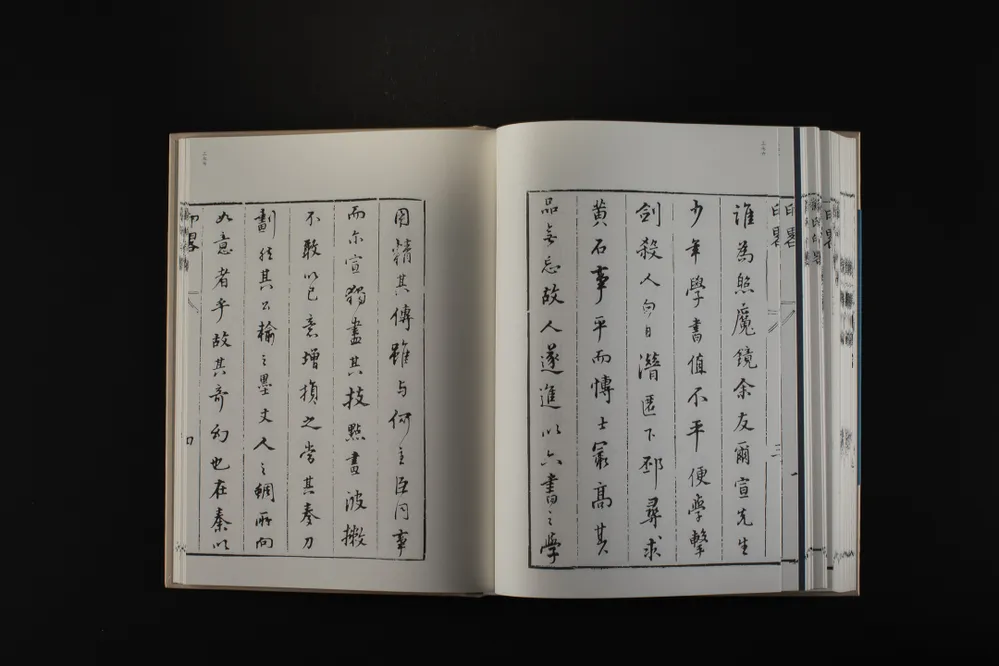 誰為照魔鏡余友爾宣先生
少年學書值不平便學擊
劍殺人白日潛匿下邳尋求
黃石事平而博士最高其
品無忘故人遂進以六書之學
印畧
三
因精其傳雖与何主臣同事
而尔宣獨盡其技點畫波撇
不敢以己意增損之當其奏刀
劃然其公榆之墨丈人之蜩所向
如意者乎故其奇幻也在秦以
印畧
四